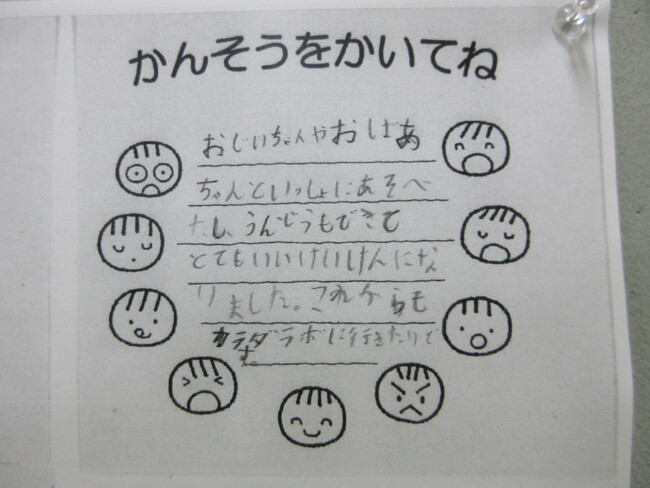 かんそうをかいてね
おじいちゃんやおばあ
ちゃんといっしょにあそべ
たし、うんどうもできて
とてもいいけいけんにな
りました。これからも
カラダラボに行きたいで
す。